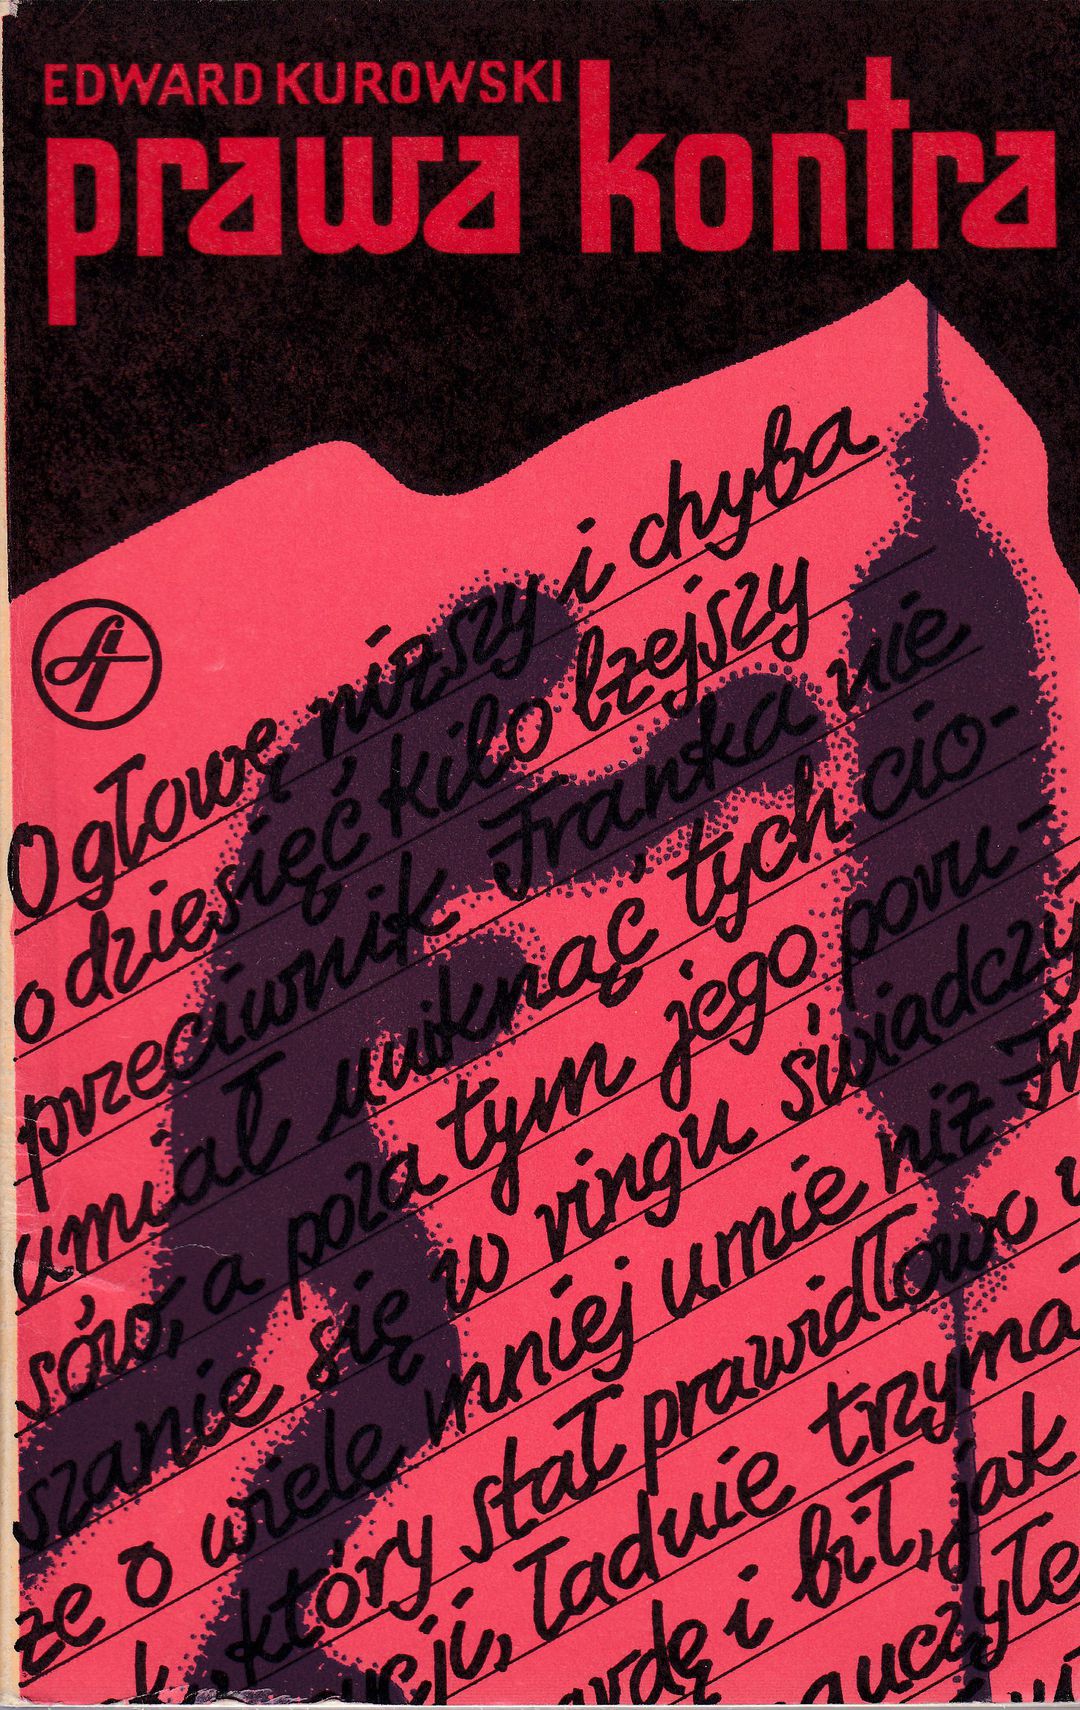 EDWARD KUROWSKI
prawa kontra
O głowę niższy i chyba
o dziesięć kilo lżejszy
przeciwnik Franka nie
umiał uniknąć tych cio-
sów, a poza tym jego poru-
szanie się w ringu świadczy
że o wiele mniej umie niż Fr
który stał prawidłowo
ładnie trzyma-
i bił, jak